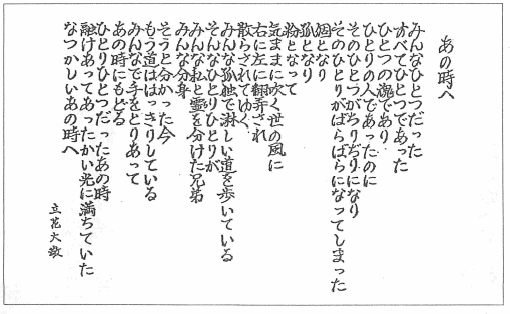 あの時へ
みんなひとつだった
すべてひとつであった
ひとつの魂であり
ひとりの人であったのに
そのひとつがちりぢりになり
そのひとりがばらばらになってしまった
個となり
孤となり
粉となって
気ままに吹く世の風に
右に左に翻弄され
散らされてゆく
みんな孤独で淋しい道を歩いている
そんなひとりひとりが
みんな私と霊を分けた兄弟
みんな分身
そうと分かった今
もう道ははっきりしている
みんなで手をとりあって
あの時にもどる
ひとりひとつだったあの時
融けあってあったかい光に満ちていた
なつかしいあの時へ
立花大敬